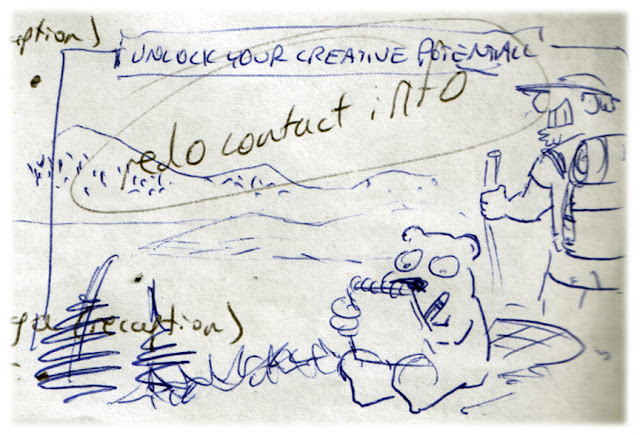 eption)
UNLOCK YOUR CREATIVE POTENTIAL!
redo contact info
(reception)